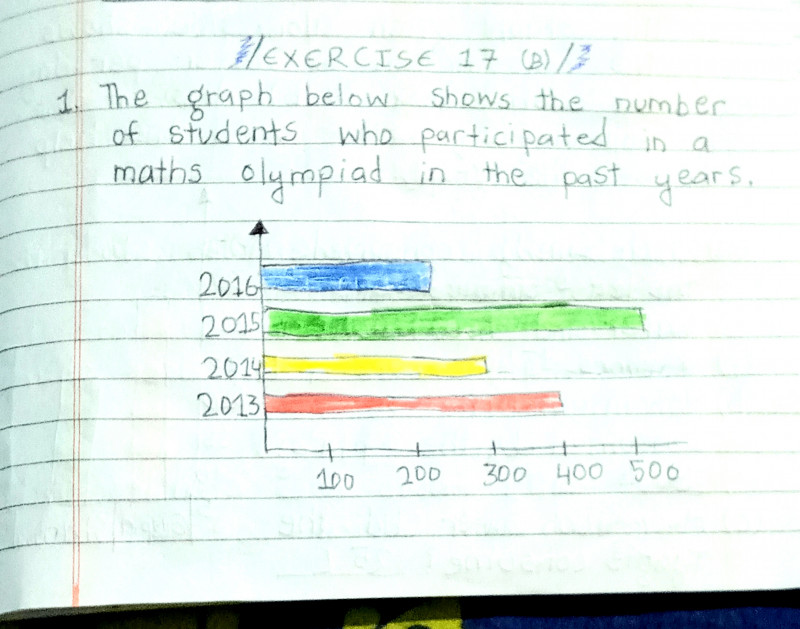 EXERCISE 17 (B)
1. The graph below shows the number
of students who participated in a
maths olympiad in the past years.
2016
2015
2014
2013
100 200 300 400 500